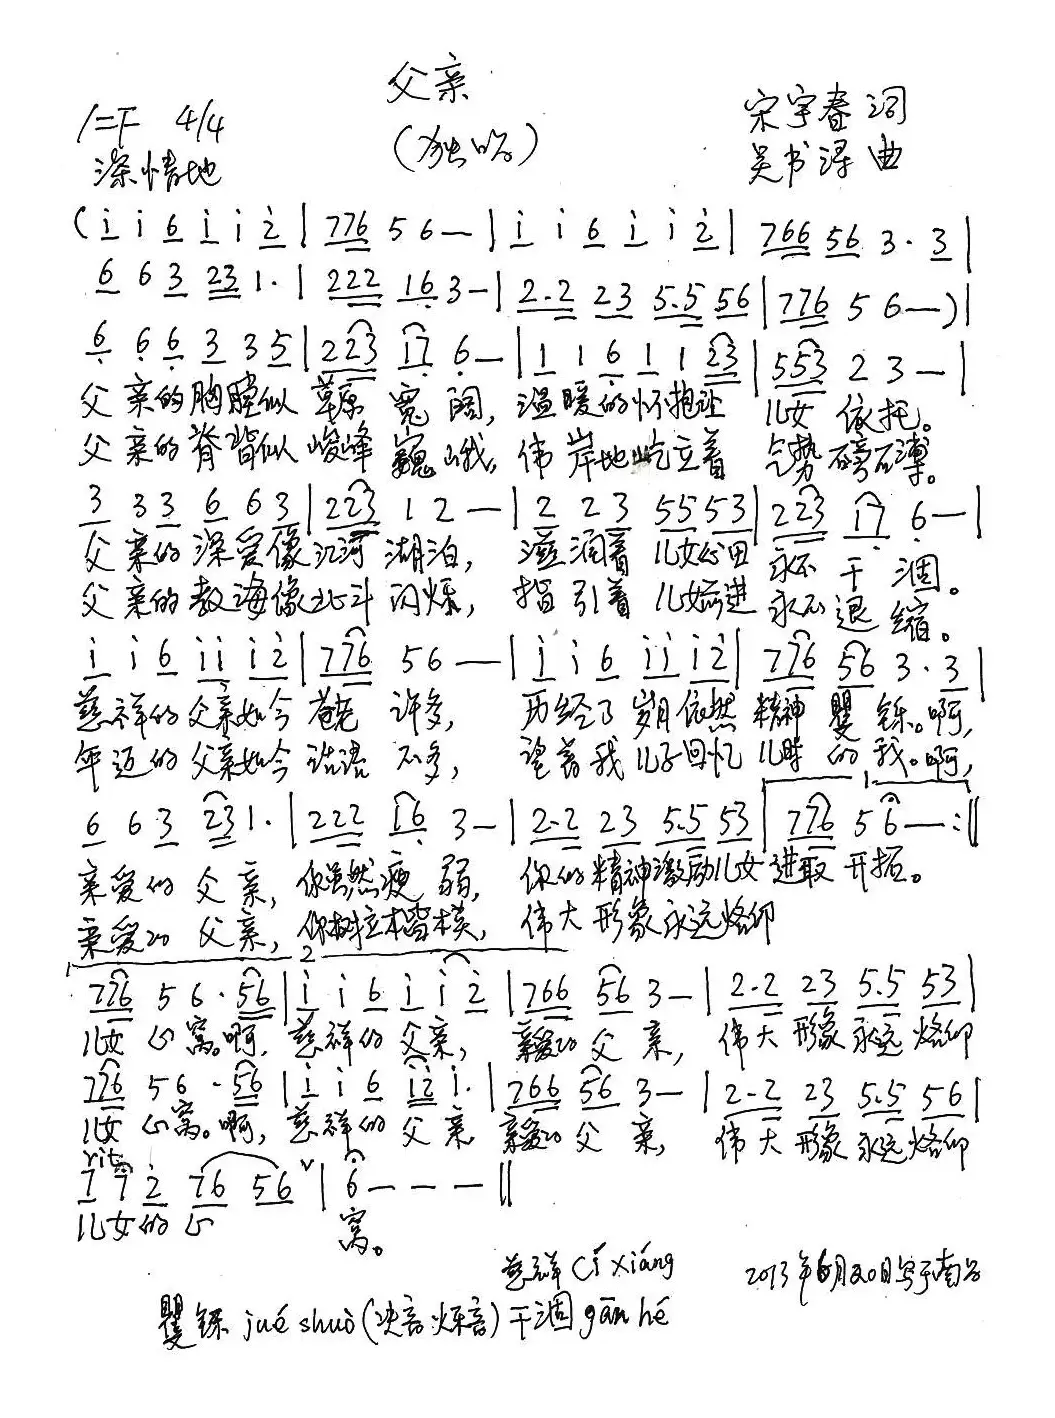 父亲
(独唱)
1=F 4/4
深情地
宋宇春 词
吴书浔 曲
(i i 6 i i 2̇ | 776 5 6 — | i i 6 i i 2̇ | 766 56 3 · 3 |
6 6 3 23 1 · | 222 16 3 — | 2·2 23 5·5 56 | 776 5 6 —) |
6 6 6 3 3 5 | 223 17 6 — | 1 1 6 1 1 23 | 553 2 3 — |
父亲的胸膛似草原 宽阔, 温暖的怀抱让 儿女 依托。
父亲的脊背似峻峰 巍峨, 伟岸地屹立着 气势磅礴。
3 33 6 63 | 223 1 2 — | 2 23 5553 | 223 17 6 — |
父亲的深爱像江河 湖泊, 滋润着 儿女心田 永不 干涸。
父亲的教诲像北斗 闪烁, 指引着 儿女前进 永不退缩。
i i 6 ii i2̇ | 776 56 — | i i 6 ii i2̇ | 776 56 3 · 3 |
慈祥的父亲如今 苍老 许多, 历经了 岁月依然 精神 矍铄。啊,
年迈的父亲如今 话语 不多, 望着我 儿子回忆 儿时 的 我。啊,
6 6 3 23 1 · | 222 16 3 — | 2·2 23 5·5 53 | 776 5 6 — :‖
亲爱的 父亲, 你虽然瘦弱, 你的精神激励儿女 进取 开拓。
亲爱的 父亲, 你树立楷模, 伟大 形象永远烙印
2
776 5 6 · 56 | i i 6 i i 2̇ | 766 56 3 — | 2·2 23 5·5 53 |
儿女 心窝。啊, 慈祥的 父亲, 亲爱的 父亲, 伟大 形象 永远 烙印
776 56 · 56 | i i 6 i2̇ i · | 766 56 3 — | 2·2 23 5·5 56 |
儿女 心窝。啊, 慈祥的 父亲 亲爱的 父亲, 伟大 形象 永远烙印
rit
7 7 2̇ 76 56 ∨ | 6 — — — ‖
儿女的 心 窝。
慈祥 cí xiáng
2013年6月20日写于南谷
矍铄 jué shuò (决音烁音) 干涸 gān hé